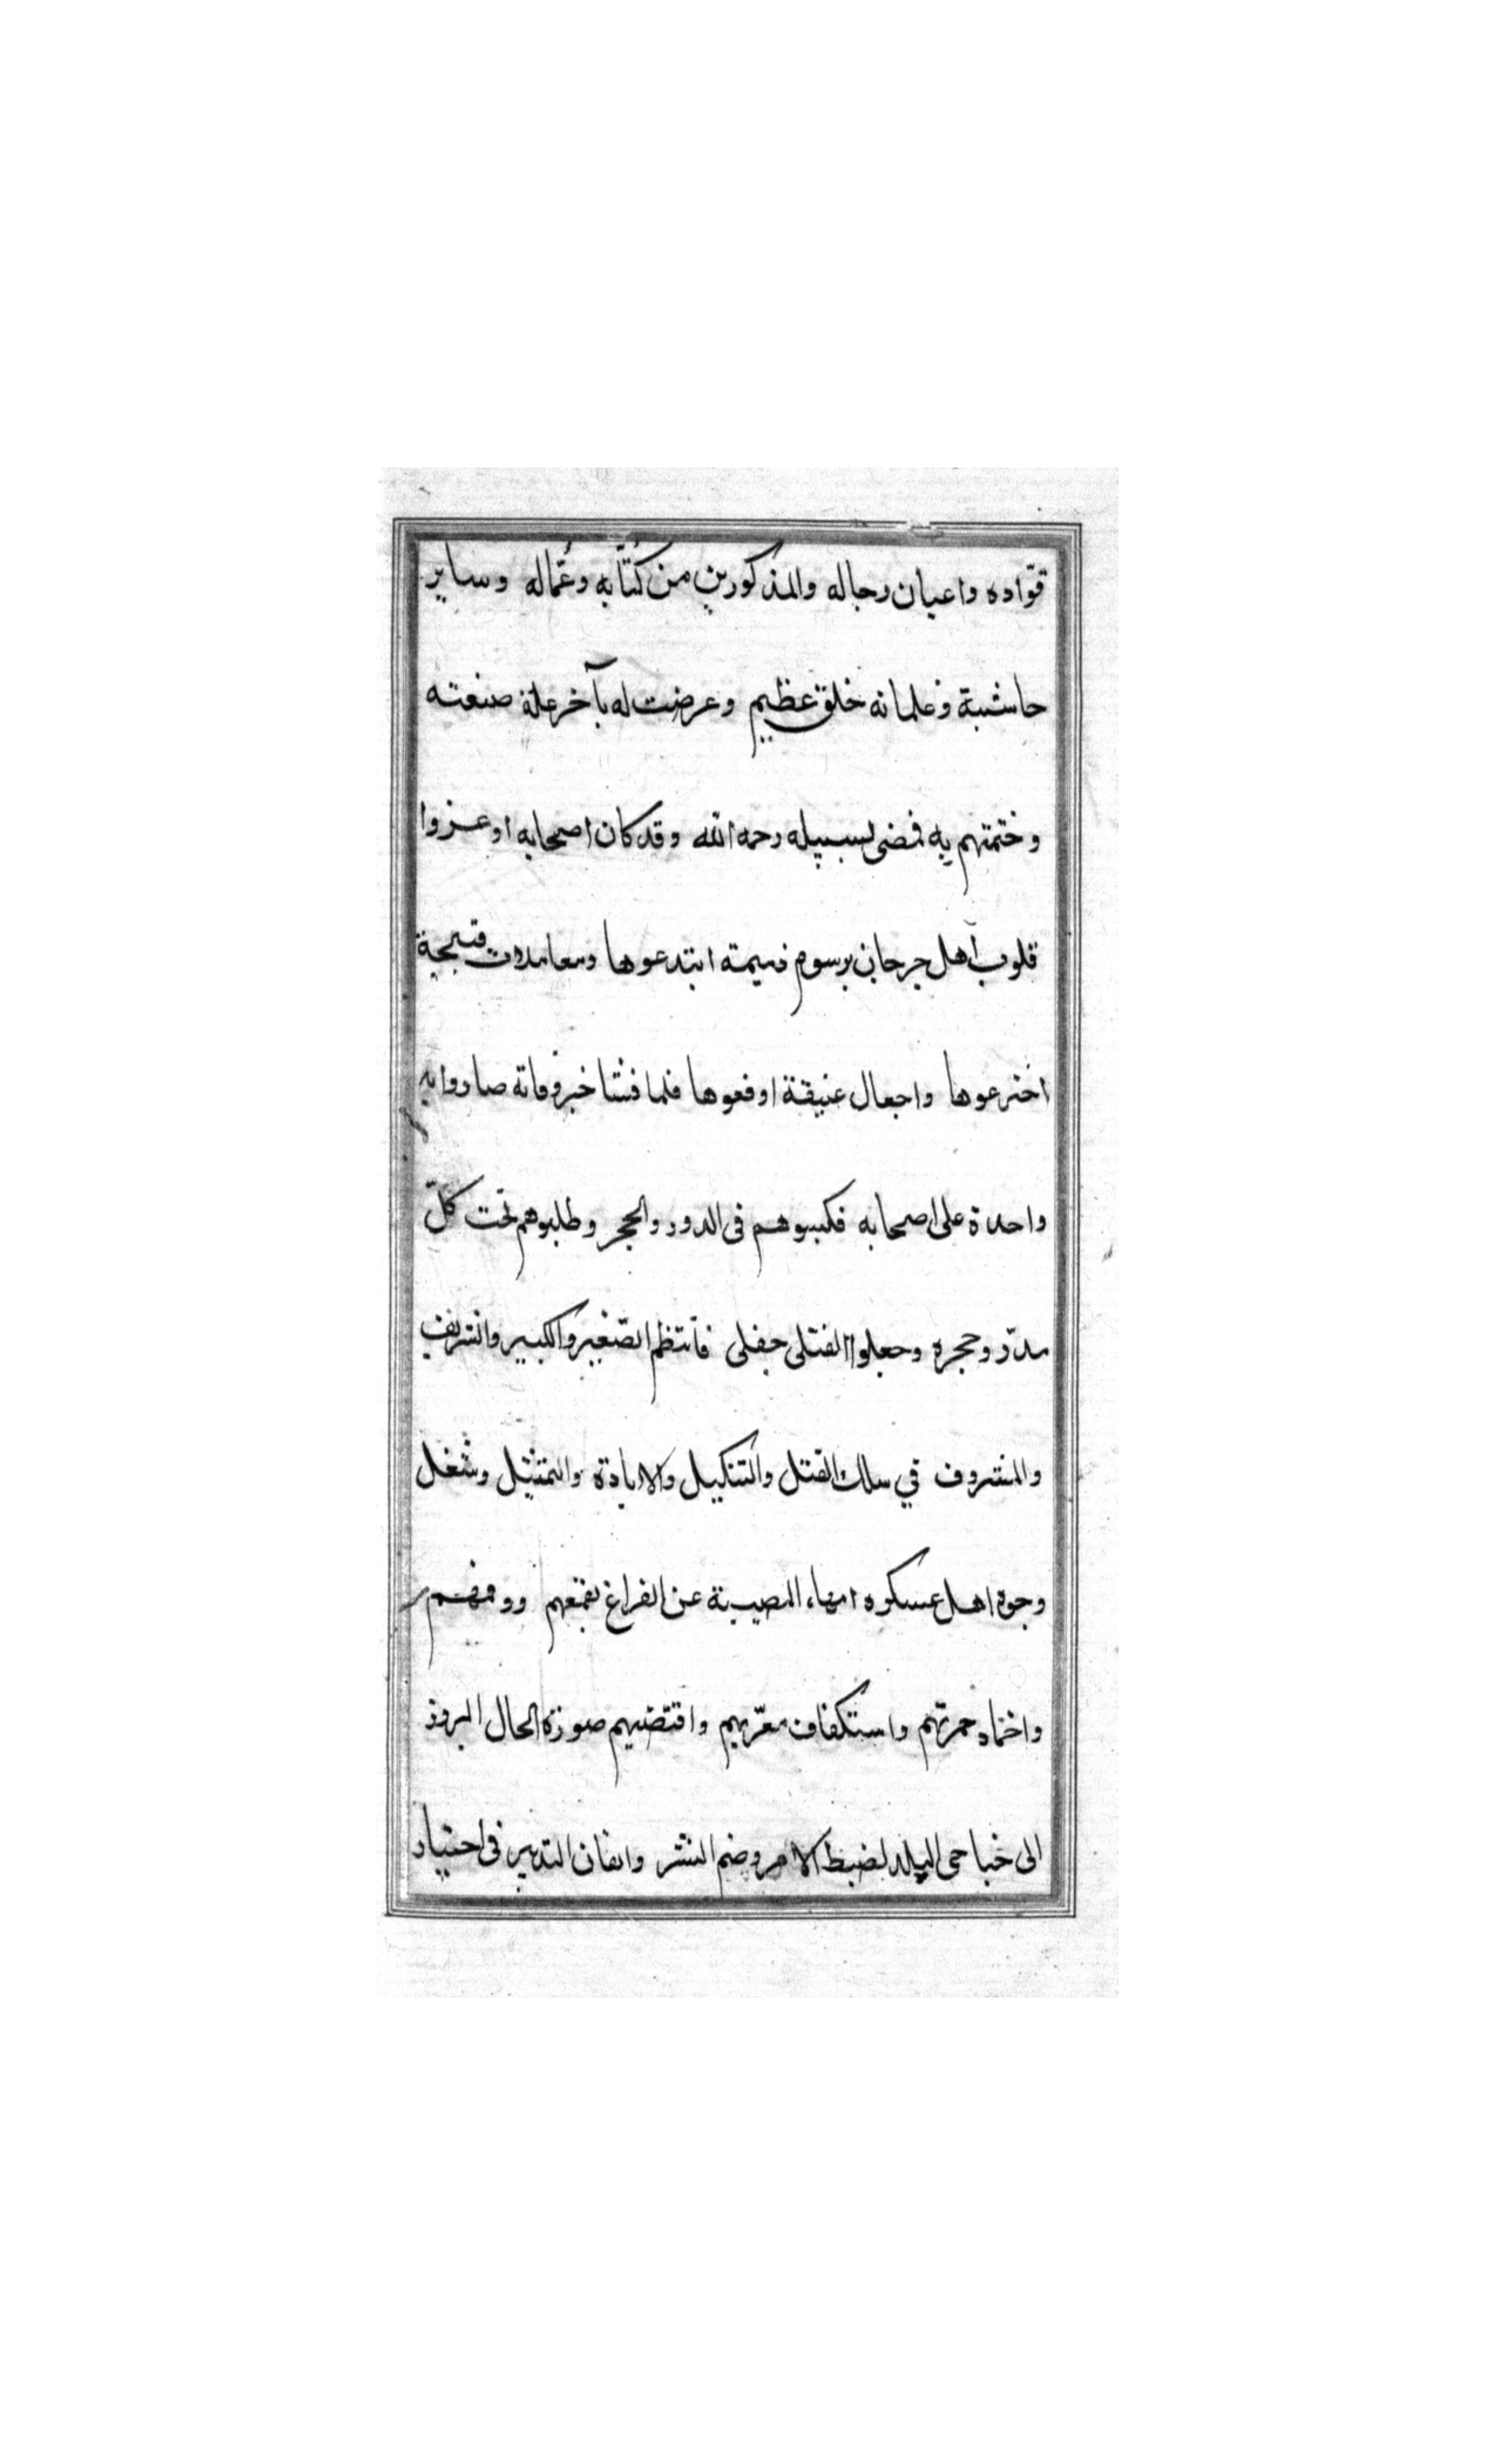 قوّاده واعيان رجاله والمذكورين من كُتّابه وعُمّاله وساير
حاشية وغلمانه خلق عظيم وعرضت له بآخر علة صنعته
وختمتهم به فمضى لسبيله رحمه الله وقد كان اصحابه اوغروا
قلوب اهل جرجان برسوم ذميمة ابتدعوها ومعاملات قبيحة
اخترعوها واجعال عنيفة اوقعوها فلما فشا خبر وفاته صاروا يد
واحدة على اصحابه فكبسوهم فى الدور والحجر وطلبوهم تحت كلّ
مدر وحجره وجعلوا القتلى جفلى فانتظم الصّغير والكبير والشريف
والمشروف في سلك القتل والتنكيل والابادة والتمثيل وشغل
وجوه اهل عسكره المصيبة عن الفراغ لقمعهم ووقمهم
واخماد جمرتهم واستكفاف معرّتهم واقتضتهم صورة الحال البروز
الى ضاحى البلد لضبط الامر وضم النشر واتقان التدبير فى اختيار